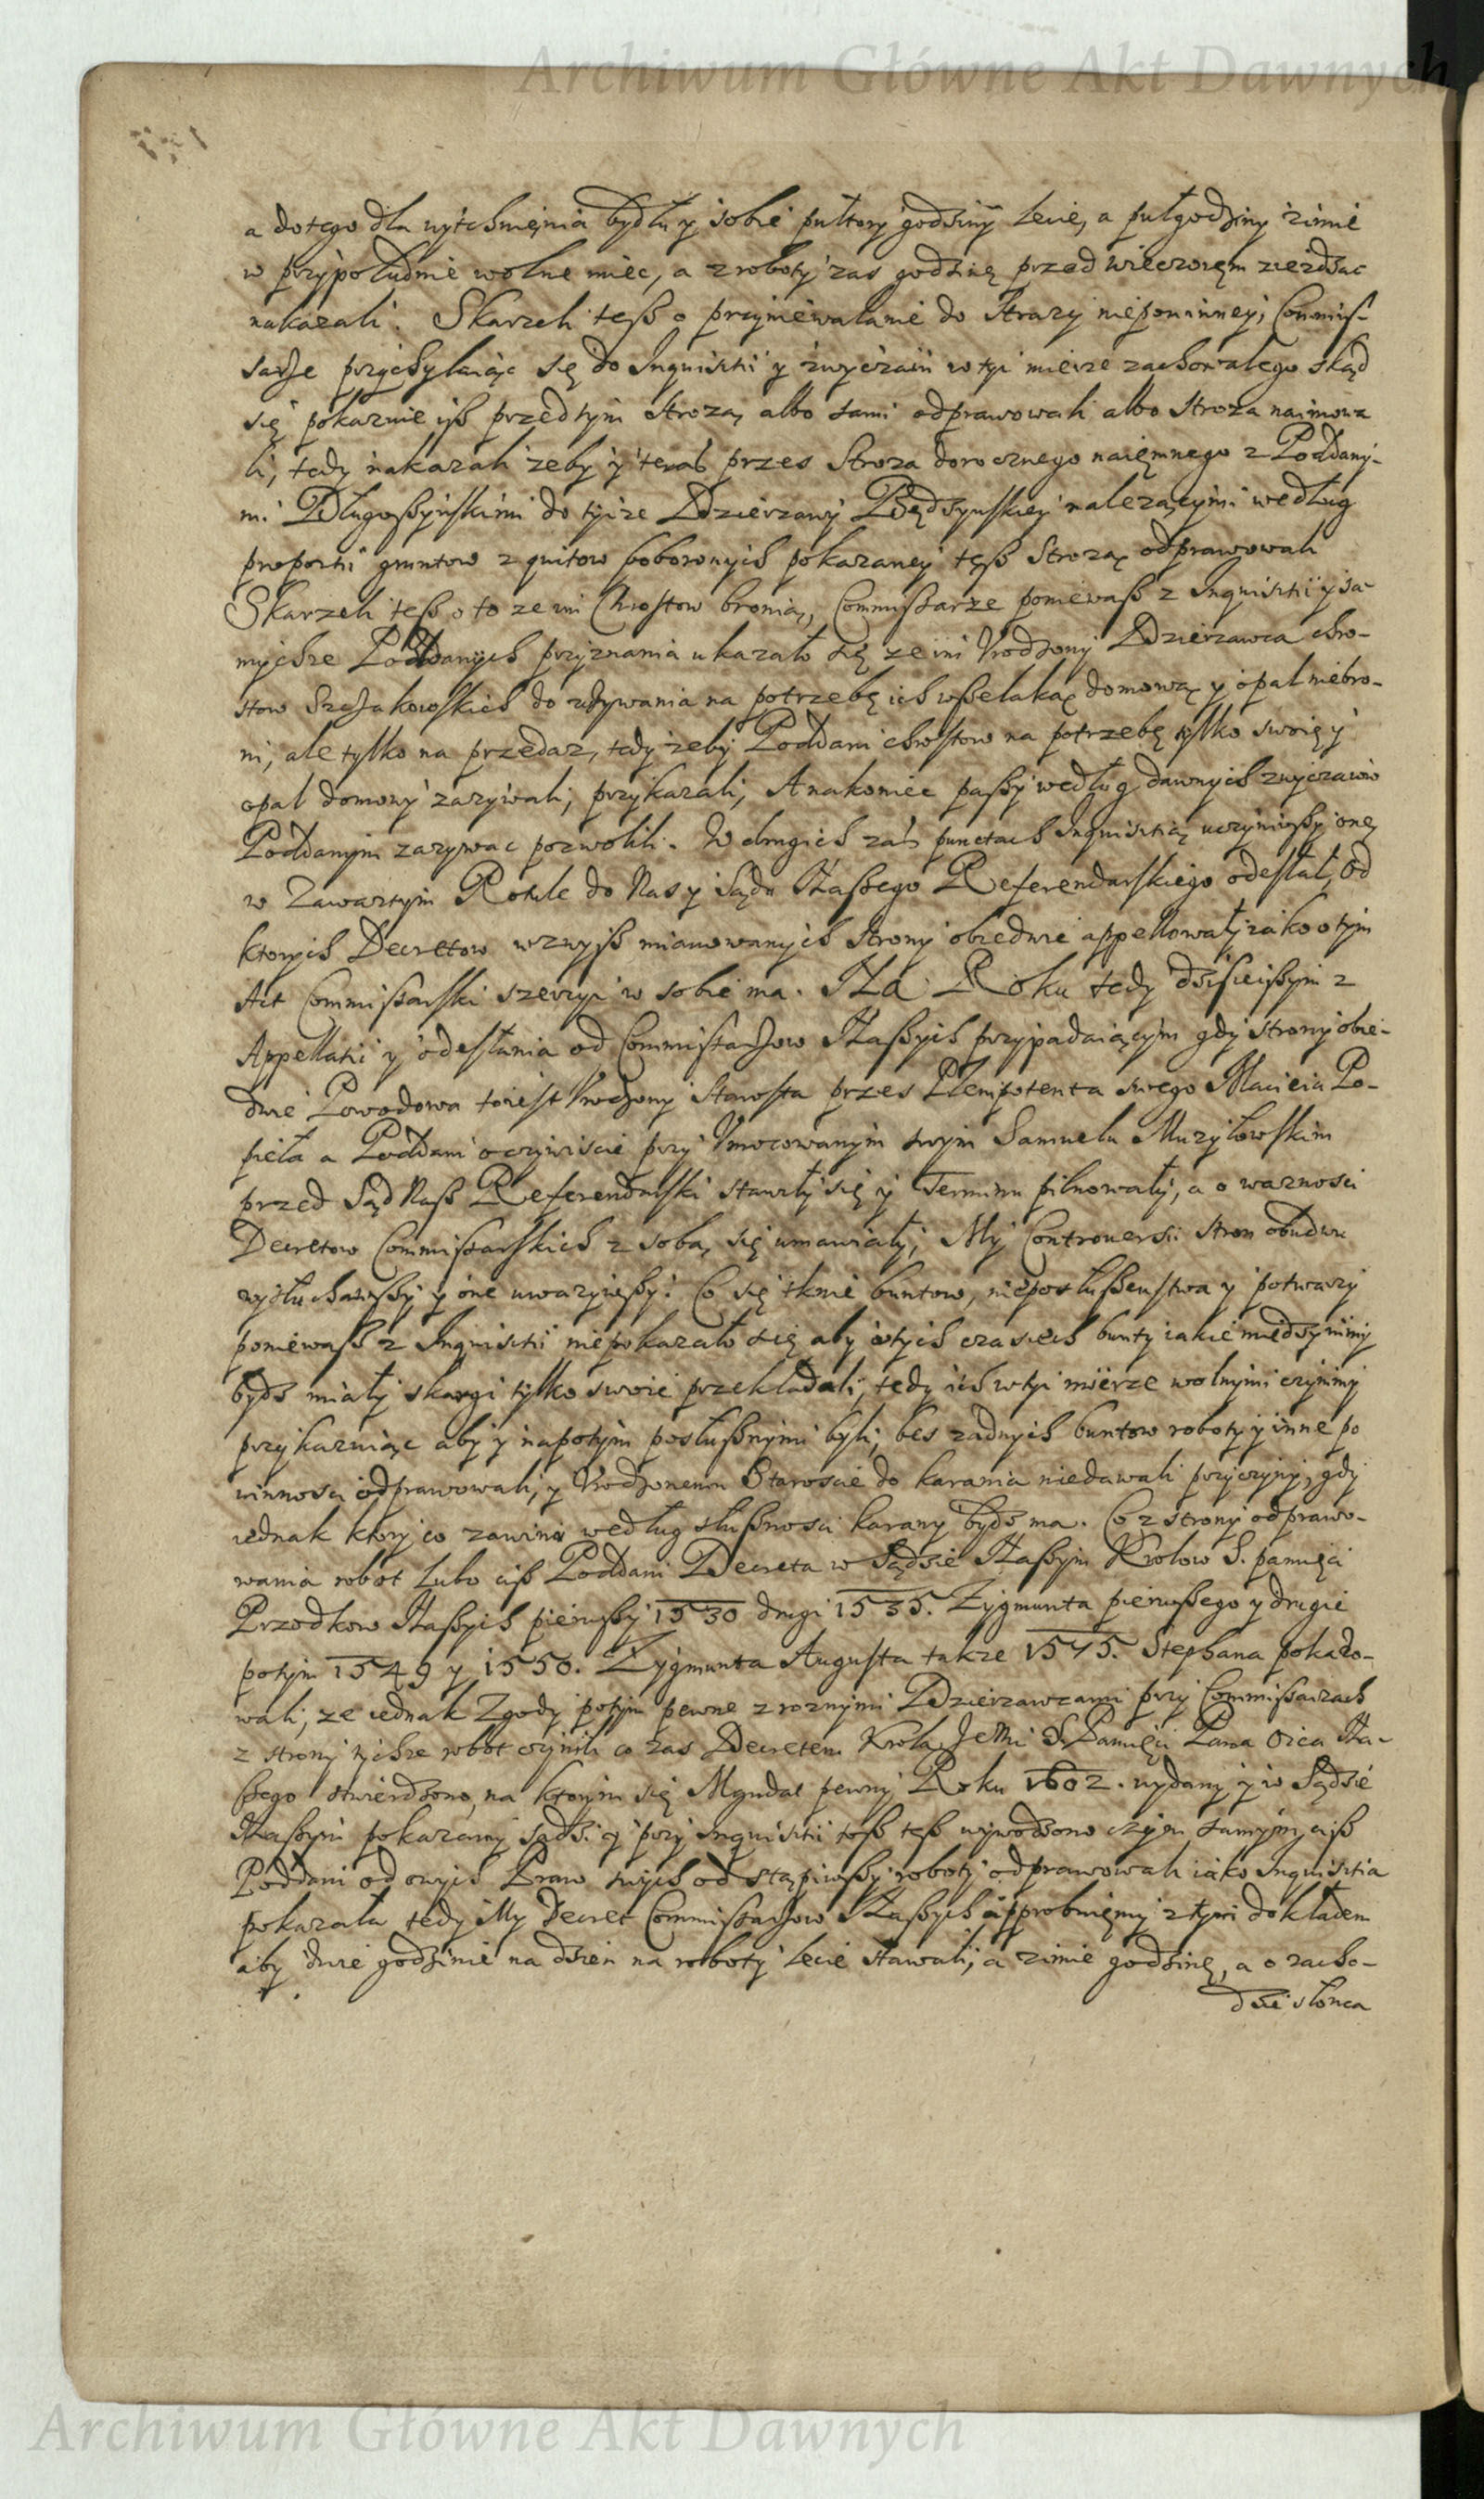 Archiwum Główne Akt Dawnych
a dotego dla wytchnienia bydłu y sobie pułtory godziny lecie, a pułgodziny zimie
w przypołudnie wolne miec, a z roboty zas godzinę przed wieczorem ziezdzac
nakazali. Skarzeli tesz o przyniewalanie do Strazy niepowinney, Commis-
sarze przychylaiąc się do Inquisitii y zwyczaiu w tyi mierze zachowałego skąd
się pokazuie isz przedtym Strozą albo sami odprawowali albo Stroza naimowa
li, tedy nakazali zeby y teraz przes Stroza dorocznego naięmnego z Poddany-
mi Długoszyńskimi do tyize Dzierzawy Będzynskiey nalezącymi według
proportii gruntow z quitow poborowych pokazaney tęsz Strozą odprawowali
Skarzeli tesz o to ze im Chrostow bronią, Commissarze poniewasz z Inquisitii y sa-
mychze Poddanych przyznania ukazało się ze im Urodzony Dzierzawca chro-
stow Szczakowskich do uzywania na potrzebę ich wszelaką domową y opal niebro-
ni, ale tylko na przedaz, tedy zeby Poddani chrostow na potrzebę tylko swoię y
opal domowy zazywali, przykazali, Anakoniec paszy według dawnych zwyczaiow
Poddanym zazywac pozwolili. W drugich zas punctach Inquisitią uczyniwszy onę
w Zawartym Rotule do Nas y Sądu Naszego Referendarskiego odesłali, Od
ktorych Decretow wzwysz mianowanych Strony obiedwie appellowały iako o tym
Act Commissarski szerzyi w sobie ma. Na Roku tedy dzisieiszym z
Appellatii y odesłania od Commissarzow Naszych przypadaiącym gdy strony obie-
dwie Powodowa toiest Urodzony Starosta przes Plenipotenta swego Macieia Po-
pieła a Poddani oczywiscie przy Umocowanym swym Samuelu Muzyłowskim
przed Sąd Nasz Referendarski stawiły się y Terminu pilnowały, a o waznosci
Decretow Commissarskich z sobą się umawiały, My Controuersii stron obudwu
wysłuchawszy y one uwazywszy: Co się tknie buntow, nieposłuszeustwa y potwarzy
poniewasz z Inquisitii niepokazało się aby wtych czasiech bunty iakie między nimi
bydz miały skargi tylko swoie przekładali, tedy ich wtyi mierze wolnymi czynimy
przykazuiąc aby y napotym posłusznymi byli, bes zadnych buntow roboty y inne po
winnosci odprawowali, y Urodzonemu Staroscie do karania niedawali przyczyny, gdy
iednak ktory co zawini według słusznosci karany bydz ma. Co z strony odprawo-
wania robot lubo cisz Poddani Decreta w Sądzie Naszym Krolow S. pamięci
Przodkow Naszych pierwszy 1530 drugi 1535. Zygmunta pierwszego y drugie
potym 1549 y 1550. Zygmunta Augusta takze 1575. Stephana pokazo-
wali, ze iednak Zgody potym pewne z roznymi Dzierzawcami przy Commissarzach
z strony tychze robot czynili co zas Decretem Krola Je Mci S. Pamięci Pana Oica Na-
szego stwierdzono, na ktorym się Mandat pewny Roku 1602. wydany y w Sądzie
Naszym pokazany sądzi y przy Inquisitii tosz tesz wywodzono czym samym cisz
Poddani od owych Praw swych odstąpiwszy roboty odprawowali iako Inquisitia
pokazała tedy My Decret Commissarzow Naszych approbuięmy z tym dokładem
aby dwie godzinie na dzien na roboty lecie stawali, a zimie godzinę, a o zacho-
dzie słonca
Archiwum Główne Akt Dawnych